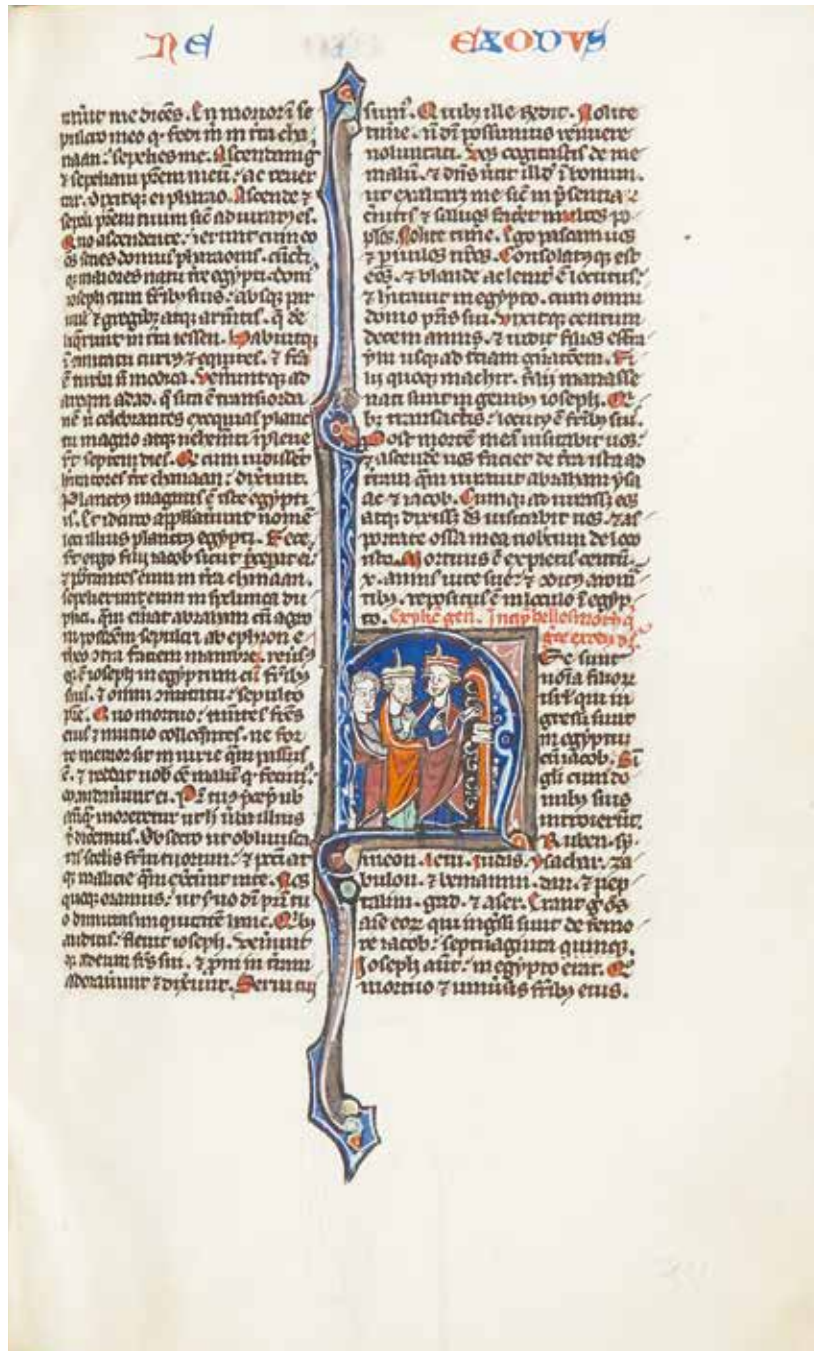 NE EXODVS
iurit me dicens. En morior in se
pulcro meo q. fodi m in tra cha
naan: sepelies me. Ascendam g
⁊ sepeliam prem meu: ac reuer
tar. Dixitq; ei pharao. Ascende ⁊
sepeli prem tuum sic adiuratus es.
Quo ascendente: ierunt cum eo
oes senes domus pharaonis. cuncti
q; maiores natu tre egypti. dom
ioseph cum fribus suis: absq; par
uulis ⁊ gregibz atq; armtis. q de
liqrant in tra iessen. Habuit q;
in comitatu currus ⁊ equites. ⁊ fca
e turba n modica. Veneruntq; ad
aream adad. q sita e transiorda
nem. ubi celebrantes exequias planc
tu magno atq; uehemti ipleue
rt septem dies. Qd cum uidissent
hitatores tre chanaan: dixerunt.
Planctus magnus e iste egypti
is. Et idcirco appellauerunt nome
loci illius planctus egypti. Fece
rt ergo filij iacob sicut pcepat ei:
⁊ portantes eum in tra chanaan.
sepelierunt eum in spelunca du
plici. qm emat abraham cu agro
in possem sepulcri ab ephron e
theo contra faciem mambre. reus
q; e ioseph in egyptum cu fribus
suis. ⁊ omni comitatu: sepulto
pre. Quo mortuo: timtes fres
eius ⁊ mutuo colloqntes. ne for
te memor sit iniurie qm passus
e. ⁊ reddat nob oe malu q. fecim:
mandauerunt ei. Pr tuus pcep nob
anqm moreretur ut h tibi uerba illius
diceremus. Obsecro ut obliuisca
ris sceleris frm tuorum: ⁊ pcci at
q; malicie qm exercuerunt in te. Nos
quoq; oramus: ut seruo di pri tu
o dimittas iniquitate hanc. Qbus
auditis: fleuit ioseph. Venerunt
q; ad eum fres sui. ⁊ pni in tram
adorauerunt ⁊ dixerunt. Serui tui
sum. Quibus ille respondit. Nolite
time. n di possumus resistere
uoluntati. Vos cogitastis de me
malu. ⁊ ds uertit illd in bonum.
ut exaltaret me sic in psentiaru
cernitis ⁊ saluos faceret multos po
plos. Nolite time. Ego pascam uos
⁊ paruulos uros. Consolatusq; est
eos. ⁊ blande ac leniter e locutus:
⁊ hitauit in egypto. cum omni
domo pris sui. Vixitq; centum
decem annis. ⁊ uidit filios effra
ym usq; ad tciam gnatoem. Fi
lij quoq; machir. filij manasse
nati sunt in genibus ioseph. Qi
bz transactis: locutus e fribus suis.
Post morte mea uisitabit uos:
⁊ ascende uos faciet de tra ista ad
tram qm iurauit abraham ysa
ac ⁊ iacob. Cumq; adiurasset eos
atq; dixisset ds uisitabit uos. ⁊ as
portate ossa mea uobcum de loco
isto. Mortuus e expletis centu
x. annis uite sue: ⁊ conditus aroma
tibus. repositus e in loculo in egyp
to. Explic gen. Incip hellesmoth q
 exodus dr.
Hec sunt
noia filiorum
isrl qui in
gressi sunt
in egyptu
cu iacob. Sin
guli cum do
mibus suis
introierunt.
Ruben. sy
meon. leui. iudas. ysachar. za
bulon. ⁊ beniamin. dan. ⁊ nep
talim. gad. ⁊ aser. Erant g oes
aie eorum qui ingssi sunt de femo
re iacob: septuaginta quinq;.
Ioseph aut: in egypto erat. Quo
mortuo ⁊ uniuersis fribus eius.